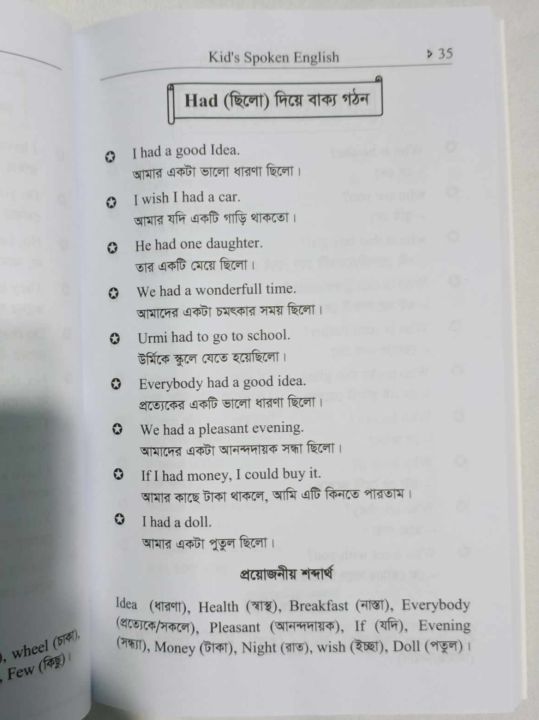 Kid's Spoken English
35
Had (ছিলো) দিয়ে বাক্য গঠন
✪ I had a good Idea.
আমার একটা ভালো ধারণা ছিলো।
✪ I wish I had a car.
আমার যদি একটি গাড়ি থাকতো।
✪ He had one daughter.
তার একটি মেয়ে ছিলো।
✪ We had a wonderfull time.
আমাদের একটা চমৎকার সময় ছিলো।
✪ Urmi had to go to school.
উর্মিকে স্কুলে যেতে হয়েছিলো।
✪ Everybody had a good idea.
প্রত্যেকের একটি ভালো ধারণা ছিলো।
✪ We had a pleasant evening.
আমাদের একটা আনন্দদায়ক সন্ধা ছিলো।
✪ If I had money, I could buy it.
আমার কাছে টাকা থাকলে, আমি এটি কিনতে পারতাম।
✪ I had a doll.
আমার একটা পুতুল ছিলো।
প্রয়োজনীয় শব্দার্থ
Idea (ধারণা), Health (স্বাস্থ্য), Breakfast (নাস্তা), Everybody
(প্রত্যেকে/সকলে), Pleasant (আনন্দদায়ক), If (যদি), Evening
(সন্ধ্যা), Money (টাকা), Night (রাত), wish (ইচ্ছা), Doll (পতুল)।
), wheel (চাকা),
, Few (কিছু)।